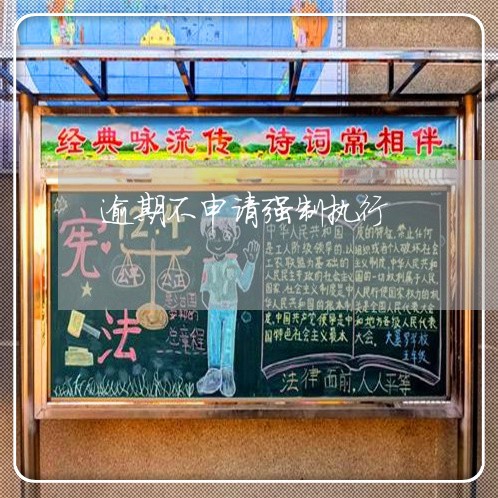 经典咏流传 诗词常相伴
逾期不申请强制执行
12.4
宪法
公平 公正
总章程
中华人民共和国
是工人阶级领导的,以
工农联盟为基础的
人民民主专政的社会主义
国家,社会主义制度是中
华人民共和国的根本制
度,中国共产党领导是中
国特色社会主义最本
质的特征,禁止任何
组织或者个人破坏社会
主义制度,中华人民共和
国的一切权利属于人民,
人民行使国家权力的机
关是全国人民代表大会
和地方各级人民代表
大会。
五年级
法律面前,人人平等